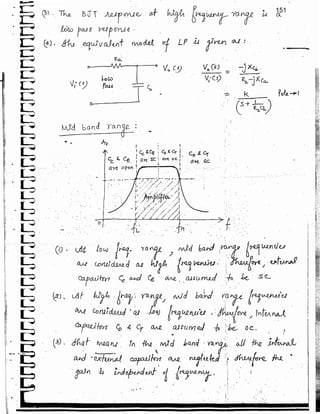 151
(3). The BJT response at high frequency range is a
low pass response.
(4). The equivalent model of LP is given as:
Vi(s) Low Pass Vo(s)
Vo(s) / Vi(s) = -jXc / R -jXc
= K / (s + 1/RC) Pole →1
Mid band range :
Av
Cc & CE are open
Cc & CE are SC
are oc
are oc
Amplifier
0 fL fH f
(1). At low freq. range, mid band range frequencies
are considered as high frequencies. Therefore, external
capacitors Cc and CE are assumed to be sc.
(2). At high freq. range, mid band range frequencies
are considered as low frequencies. Therefore, Internal
capacitors are assumed to be oc.
(3). That means in the mid band range all the internal
and external capacitors are neglected, therefore the
gain is independent of frequency.